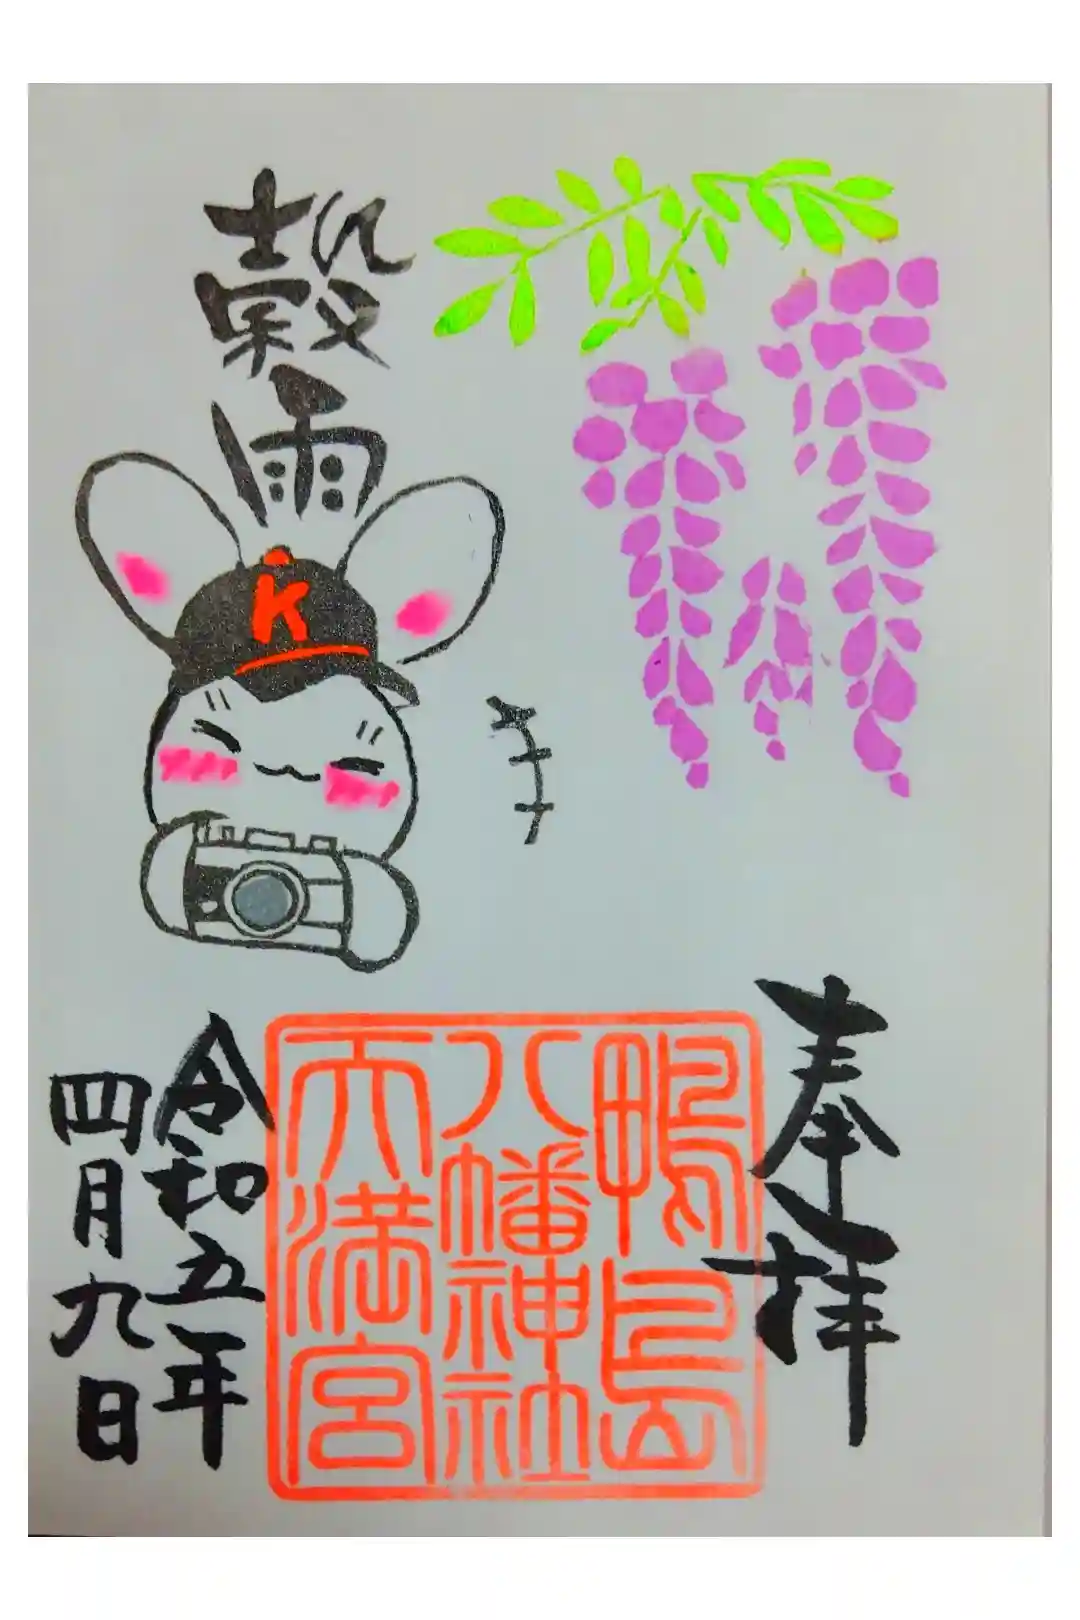 奉拝
鴨島
八幡神社
天満宮
穀雨
K
令和五年
四月九日